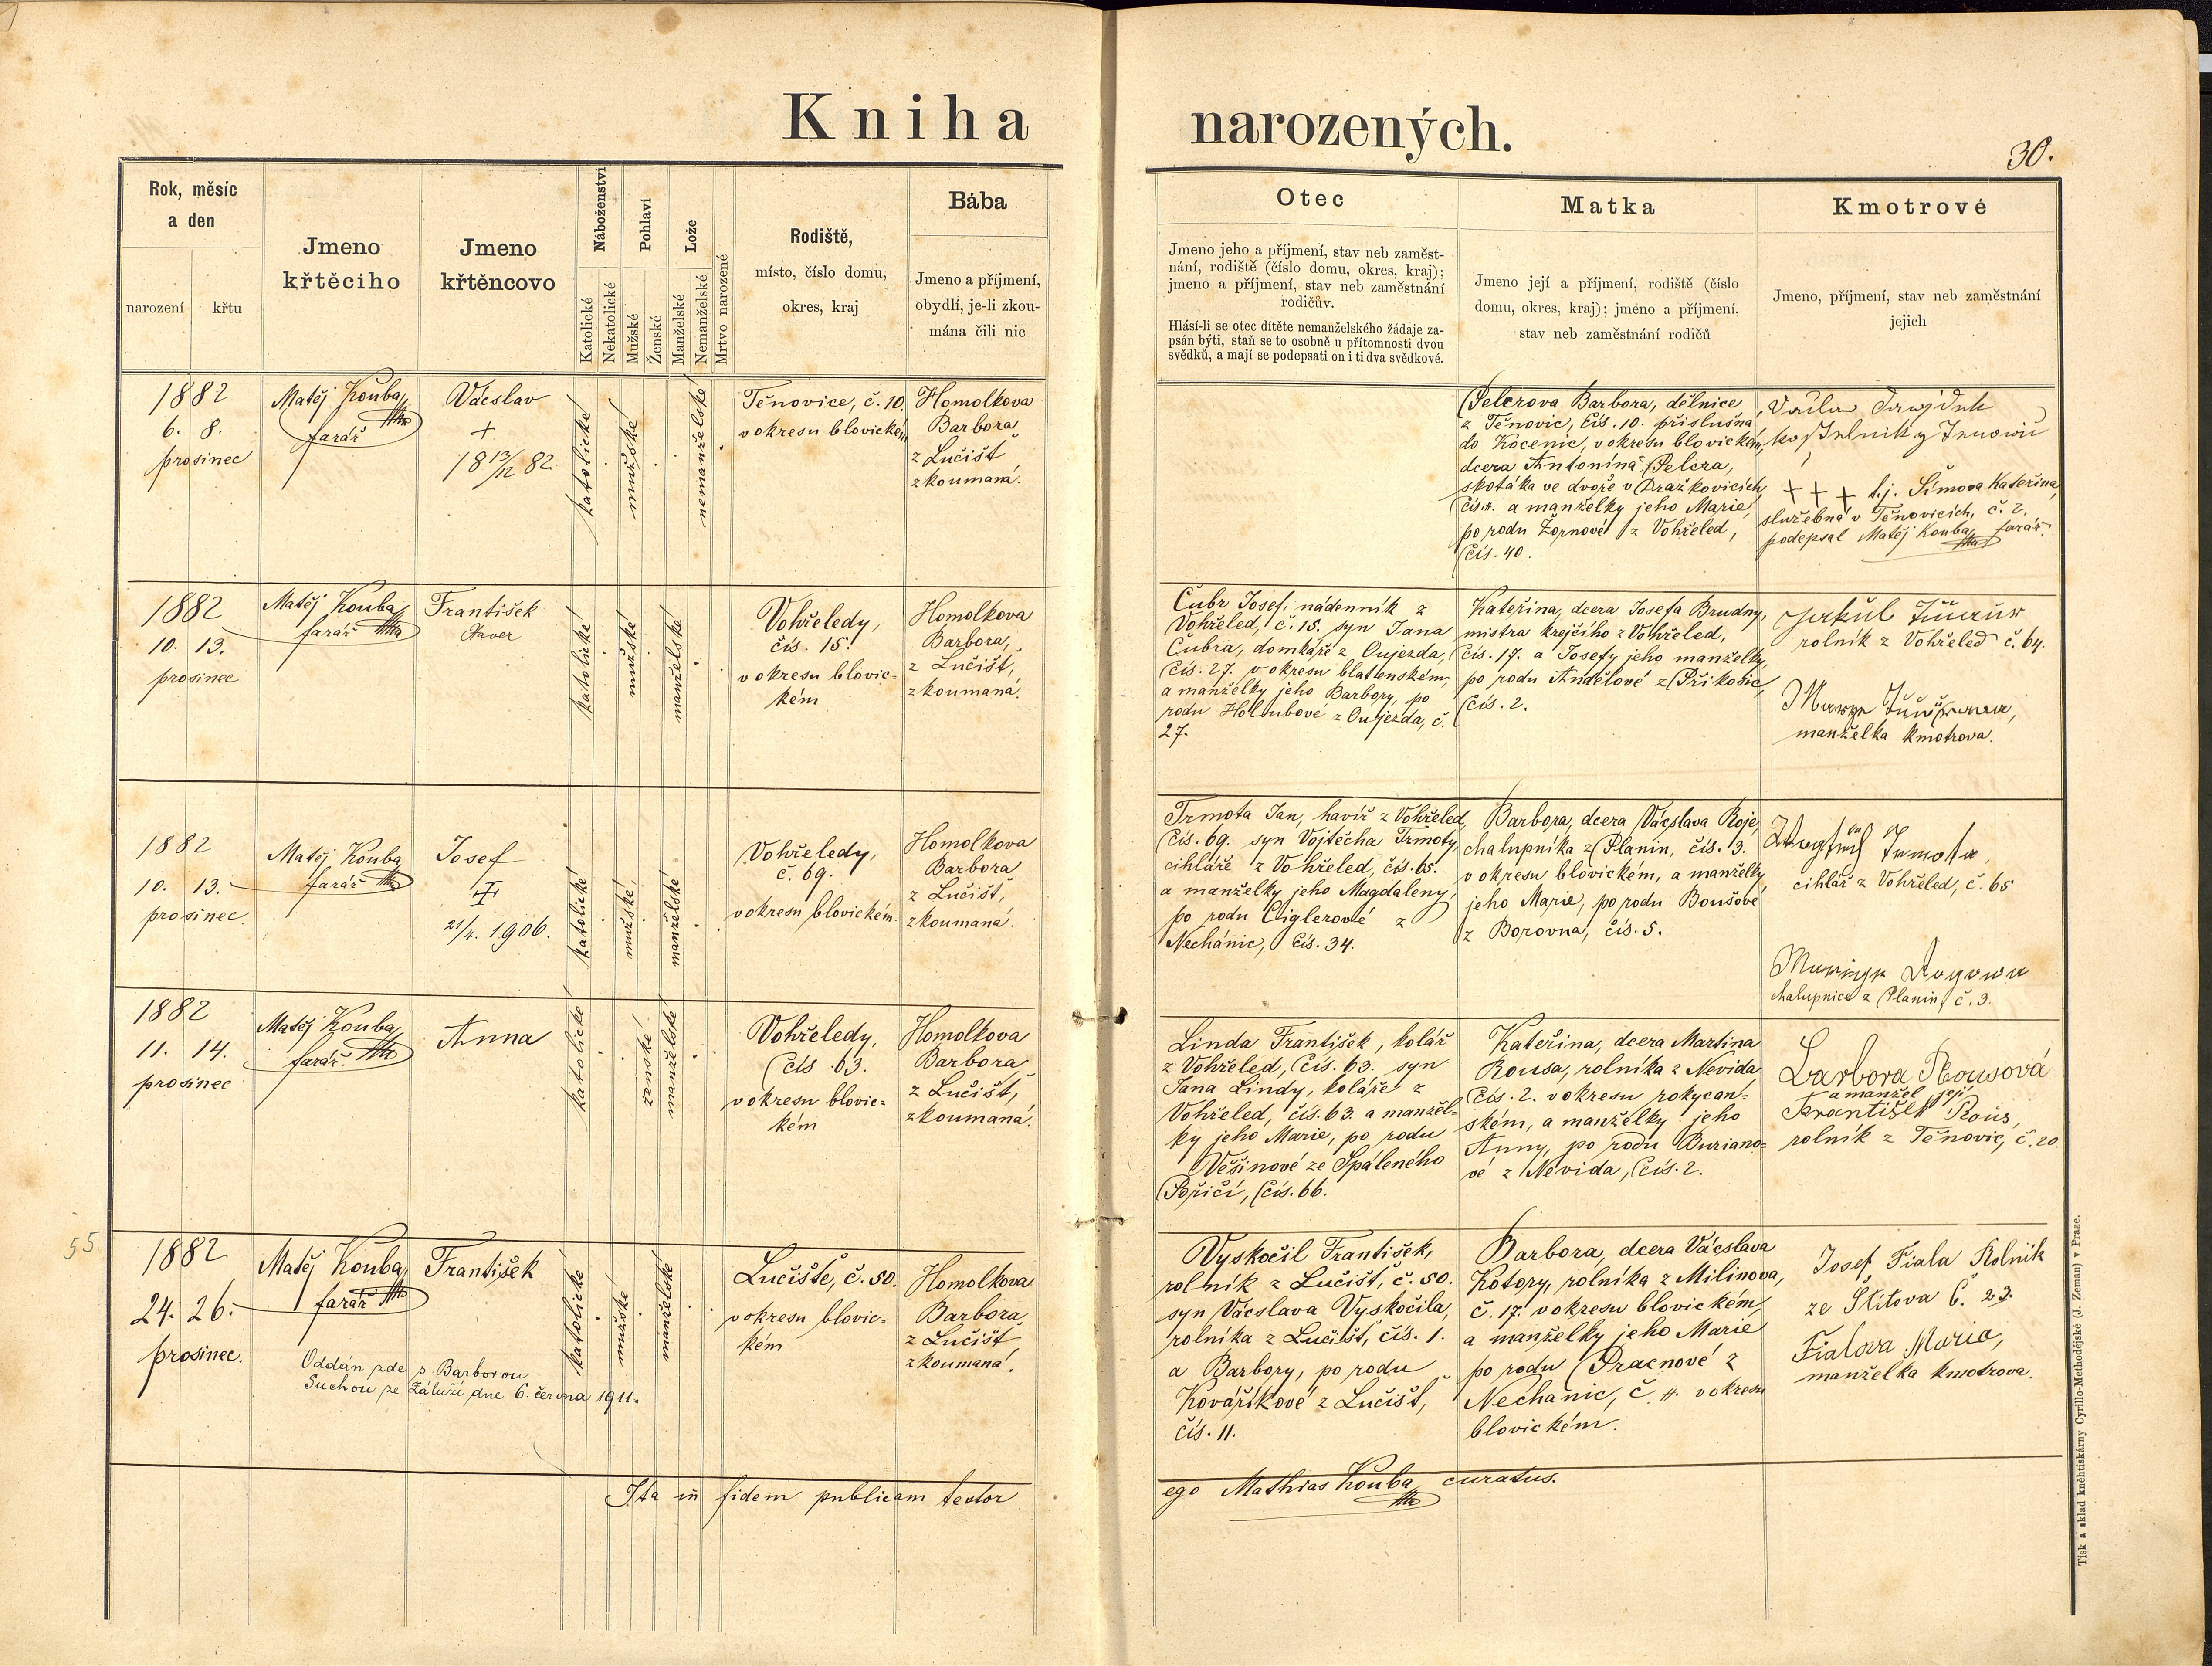 Kniha narozených.
30.
Rok, měsíc
a den
narození
křtu
Jmeno
křtěcího
Jmeno
křtěncovo
Náboženství
Katolické
Nekatolické
Pohlaví
Mužské
Ženské
Lože
Manželské
Nemanželské
Mrtvo narozené
Rodiště,
místo, číslo domu,
okres, kraj
Bába
Jmeno a příjmení,
obydlí, je-li zkou-
mána čili nic
Otec
Jmeno jeho a příjmení, stav neb zaměst-
nání, rodiště (číslo domu, okres, kraj);
jmeno a příjmení, stav neb zaměstnání
rodičův.
Hlásí-li se otec dítěte nemanželského žádaje za-
psán býti, staň se to osobně u přítomnosti dvou
svědků, a mají se podepsati on i ti dva svědkové.
Matka
Jmeno její a příjmení, rodiště (číslo
domu, okres, kraj); jméno a příjmení,
stav neb zaměstnání rodičů
Kmotrové
Jmeno, příjmení, stav neb zaměstnání
jejich
1882
6. 8.
prosinec
Matěj Kouba,
farář
Václav
+
18 13/12 82
katolické
mužské
nemanželské
Těnovice, č. 10.
v okresu blovickém
Homolkova
Barbora
z Lučišť
zkoumaná.
Pelcrova Barbora, dělnice
z Těnovic, čís. 10. příslušná
do Kocenic, v okresu blovickém,
dcera Antonína Pelcra,
skotáka ve dvoře v Dražkovicích
čís. 11. a manželky jeho Marie,
po rodu Žornové z Vohřeled,
čís. 40.
+ + + t.j. Šimova Kateřina,
služebná v Těnovicích, č. 2.
podepsal Matěj Kouba, farář.
1882
10. 13.
prosinec
Matěj Kouba,
farář
František
Xaver
katolické
mužské
manželské
Vohřeledy,
čís. 15.
v okresu blovic-
kém
Homolkova
Barbora,
z Lučišť,
zkoumaná.
Čubr Josef, nádenník z
Vohřeled, č. 15. syn Jana
Čubra, domkáře z Oujezda,
čís. 27. v okresu blatenském,
a manželky jeho Barbory, po
rodu Holoubové z Oujezda, č.
27.
Kateřina, dcera Josefa Brudny,
mistra krejčího z Vohřeled,
čís. 17. a Josefy jeho manželky,
po rodu Andělové z Příkosic,
čís. 2.
rolník z Vohřeled č. 64.
manželka kmotrova.
1882
10. 13.
prosinec
Matěj Kouba
farář
Josef
21/4. 1906.
katolické
mužské
manželské
Vohřeledy,
č. 69.
v okresu blovickém.
Homolkova
Barbora
z Lučišť,
zkoumaná.
Trmota Jan, havíř z Vohřeled,
čís. 69. syn Vojtěcha Trmoty,
cihláře z Vohřeled, čís. 65.
a manželky jeho Magdaleny,
po rodu Ciglerové z
Nechánic, čís. 34.
Barbora, dcera Václava Roje,
chalupníka z Planin, čís. 3.
v okresu blovickém, a manželky
jeho Marie, po rodu Boušové
z Borovna, čís. 5.
cihlář z Vohřeled, č. 65
chalupnice z Planin, č. 3.
1882
11. 14.
prosinec
Matěj Kouba,
farář.
Anna
katolické
ženské
manželské
Vohřeledy,
čís 63.
v okresu blovic-
kém
Homolkova
Barbora,
z Lučišť,
zkoumaná.
Linda František, kolář
z Vohřeled, čís. 63. syn
Jana Lindy, koláře z
Vohřeled, čís. 63. a manžel-
ky jeho Marie, po rodu
Věšinové ze Spáleného
Poříčí, čís. 66.
Kateřina, dcera Martina
Rousa, rolníka z Nevida,
čís. 2. v okresu rokycan-
ském, a manželky jeho
Anny, po rodu Buriano-
vé z Nevida, čís. 2.
Barbora Rousová
a manžel její
František Rous,
rolník z Těnovic, č. 20
55
1882
24. 26.
prosinec.
Matěj Kouba,
farář
František
Oddán zde s Barborou
Suchou ze Záluží, dne 6. června 1911.
katolické
mužské
manželské
Lučiště, č. 50.
v okresu blovic-
kém
Homolkova
Barbora,
z Lučišť
zkoumaná.
Vyskočil František,
rolník z Lučišť, č. 50.
syn Václava Vyskočila,
rolníka z Lučišť, čís. 1.
a Barbory, po rodu
Kovaříkové z Lučišť,
čís. 11.
Barbora, dcera Václava
Kotory, rolníka z Milinova,
č. 17. v okresu blovickém,
a manželky jeho Marie
po rodu Pracnové z
Nechanic, č. 11. v okresu
blovickém.
Josef Fiala Rolník
ze Štítova Č. 23.
Fialova Maria,
manželka kmotrova.
Ita in fidem publicam testor
ego Mathias Kouba, curatus.
Tisk a sklad kněhtiskárny Cyrillo-Methodějské (J. Zeman) v Praze.